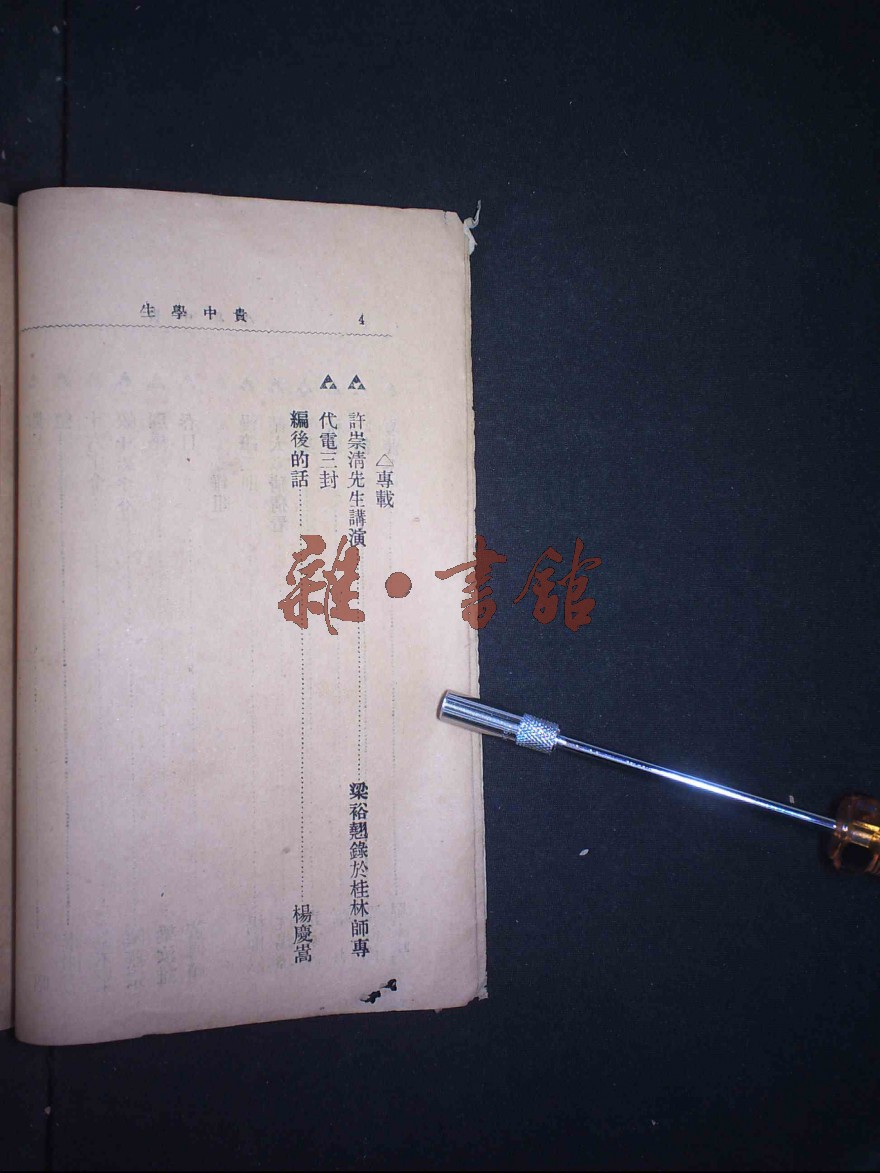 貴中學生 4
△專載
許崇清先生講演……梁裕翹錄於桂林師專
代電三封
編後的話……楊慶嵩
雜·書館